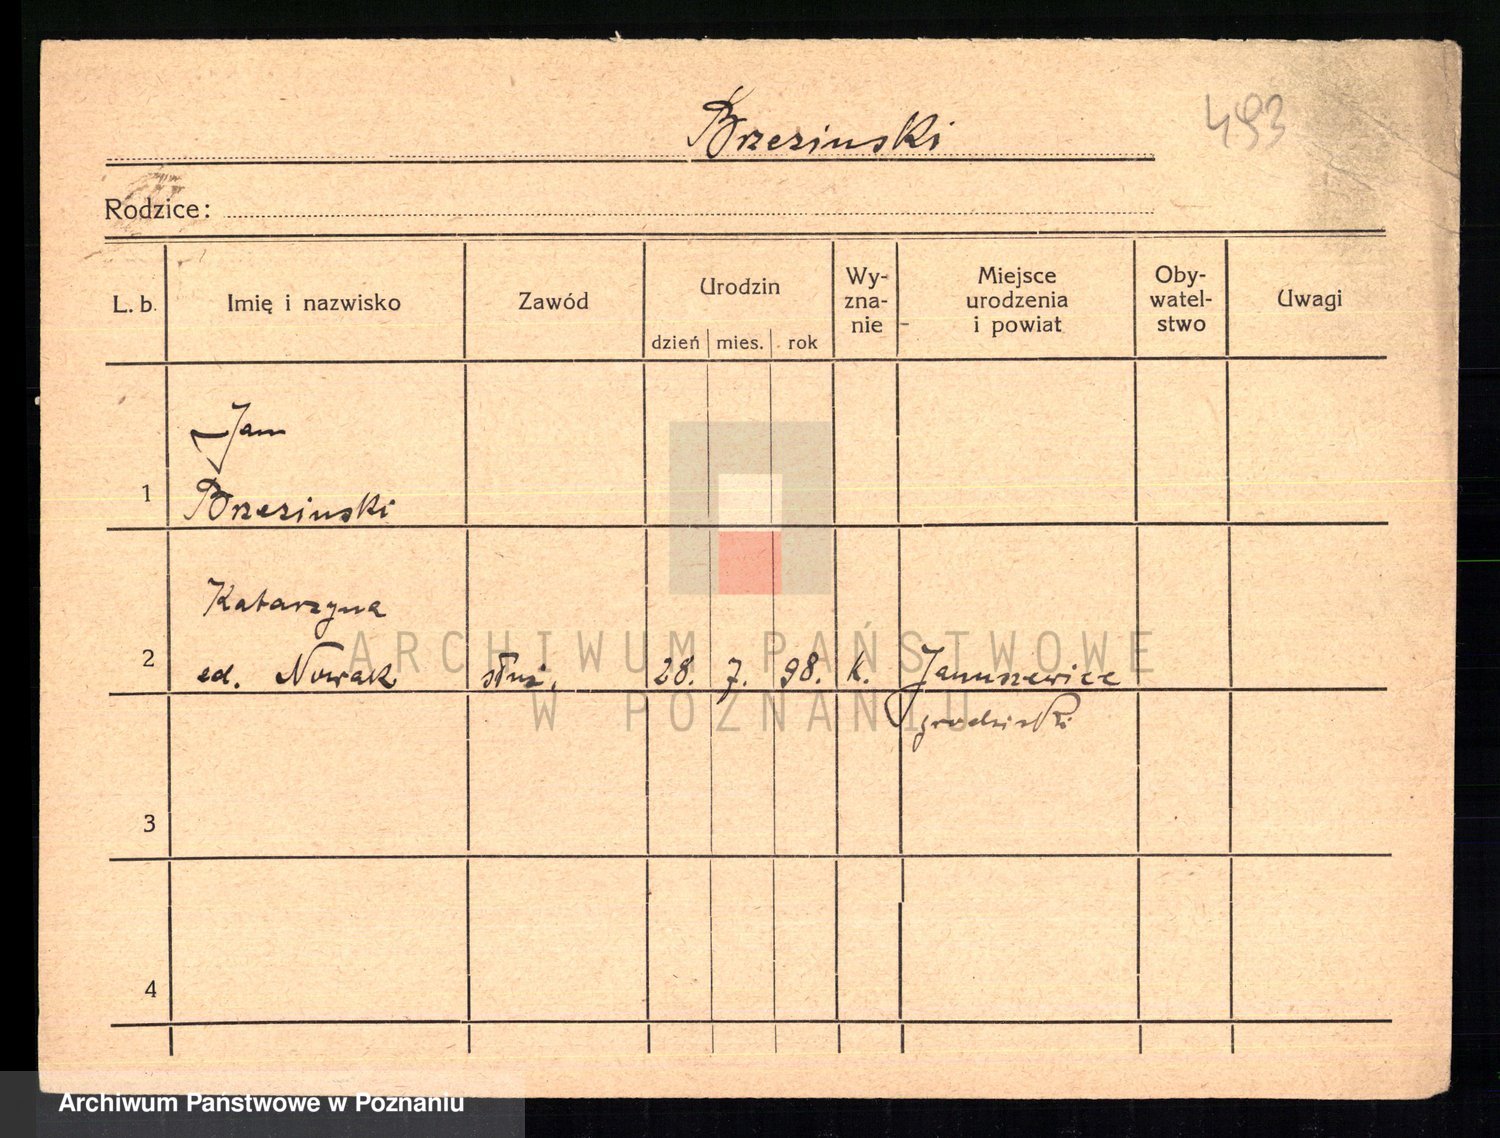 Brzezinski
493
Rodzice:
L. b.
Imię i nazwisko
Zawód
Urodzin
dzień mies. rok
Wy-
zna-
nie
Miejsce
urodzenia
i powiat
Oby-
watel-
stwo
Uwagi
1
Jan
Brzezinski
2
Katarzyna
ed. Nowak służ. 28. 7. 98. k. Januszewice
grodziski
3
4
ARCHIWUM PAŃSTWOWE
W POZNANIU
Archiwum Państwowe w Poznaniu